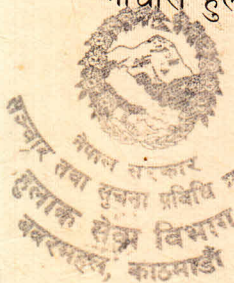 नेपाल सरकार
सञ्चार तथा सूचना प्रविधि
हुलाक सेवा विभाग
बबरमहल, काठमाडौं